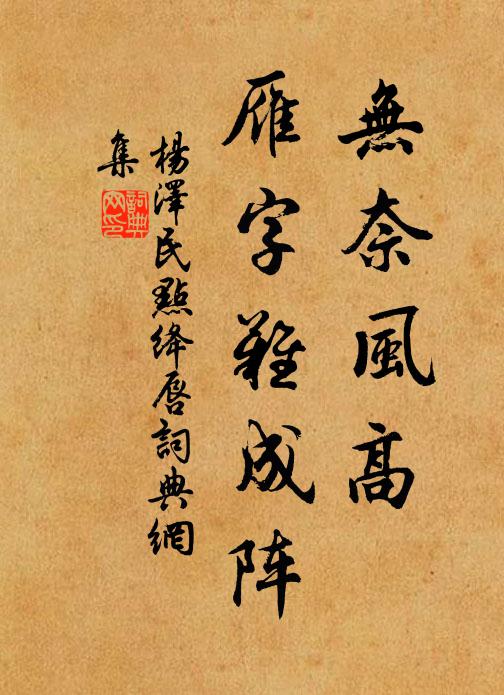 無奈風高
雁字難成阵
楊澤民點绛唇詞典網
集
詞典
网印